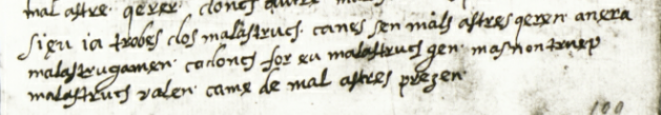 mal astre · qerer · doncs autre
sieu ia trobes dos malastrucs · canes sen mals astres qeren · anera
malastrugamen · cadoncs for eu malastrucs gen · mas non truep
malastrucs valen · came de mal astres prezen
100